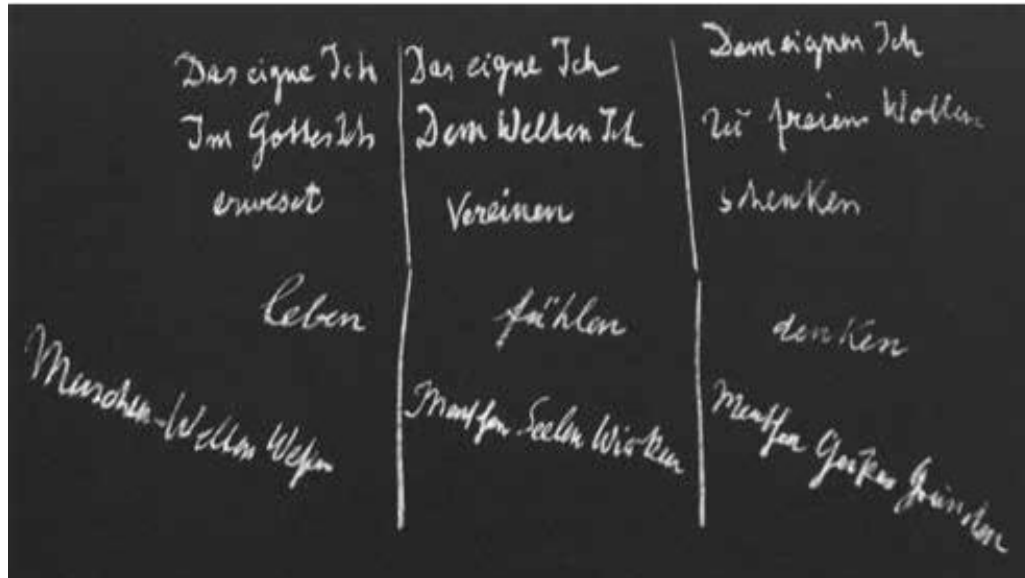 Das eigne Ich
Im Gottes Ich
erweset
leben
Menschen-Welten Wesen
Das eigne Ich
Dem Welten Ich
Vereinen
fühlen
Menschen Seelen Wirken
Dem eignen Ich
zu freiem Wollen
schenken
denken
Menschen Geistes Gründen